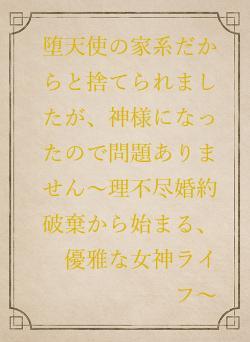 堕天使の家系だか
らと捨てられまし
たが、神様になっ
たので問題ありま
せん～理不尽婚約
破棄から始まる、
優雅な女神ライ
フ～